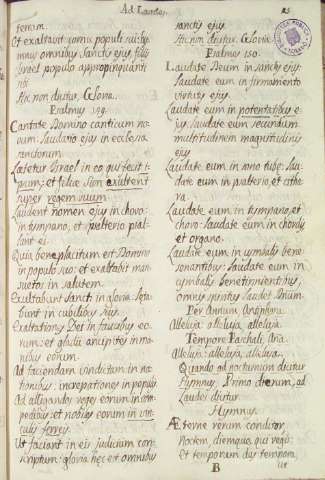 Ad Laudes.
25
terram.
Et exaltavit cornu populi sui: hy-
mnus omnibus sanctis ejus, filiis
Israel populo appropinquanti
sibi.
Hic non dicitur, Gloria.
Psalmus 149.
Cantate Domino canticum no-
vum: laudatio ejus in ecclesia
sanctorum.
Lætetur Israel in eo qui fecit i-
psum: et filiæ Sion exultent
super regem suum.
Laudent nomen ejus in choro:
in tympano, et psalterio psal-
lant ei.
Quia beneplacitum est Domino
in populo suo: et exaltabit man-
suetos in salutem.
Exultabunt sancti in gloria: læta-
bunt in cubilibus suis.
Exaltationes Dei in faucibus eo-
rum: et gladii ancipites in ma-
nibus eorum.
Ad faciendam vindictam in na-
tionibus: increpationes in populis.
Ad alligandos reges eorum in com-
pedibus: et nobiles eorum in vin-
culis ferreis.
Ut faciant in eis judicium con-
scriptum: gloria hæc est omnibus
sanctis ejus.
Hic non dicitur, Gloria.
Psalmus 150.
Laudate Deum in sanctis ejus:
laudate eum in firmamento
virtutis ejus.
Laudate eum in potentatibus e-
jus: laudate eum secundum
multitudinem magnitudinis
ejus
Laudate eum in sono tubæ: lau-
date eum in psalterio, et citha-
ra.
Laudate eum in tympano, et
choro: laudate eum in chordis,
et organo.
Laudate eum in cymbalis bene
sonantibus: laudate eum in
cymbalis
omnis spiritus laudet Dnum.
Per Annum Antiphona.
Alleluja: alleluja, alleluja.
Tempore Paschali, Ana.
Alleluja: alleluja, alleluia.
Quando ad nocturnum dicitur
Hymnus, Primo dierum, ad
Laudes dicitur
Hymnus.
Æterne rerum conditor,
Noctem, diemque qui regis:
Et temporum das tempora,
B
Ut